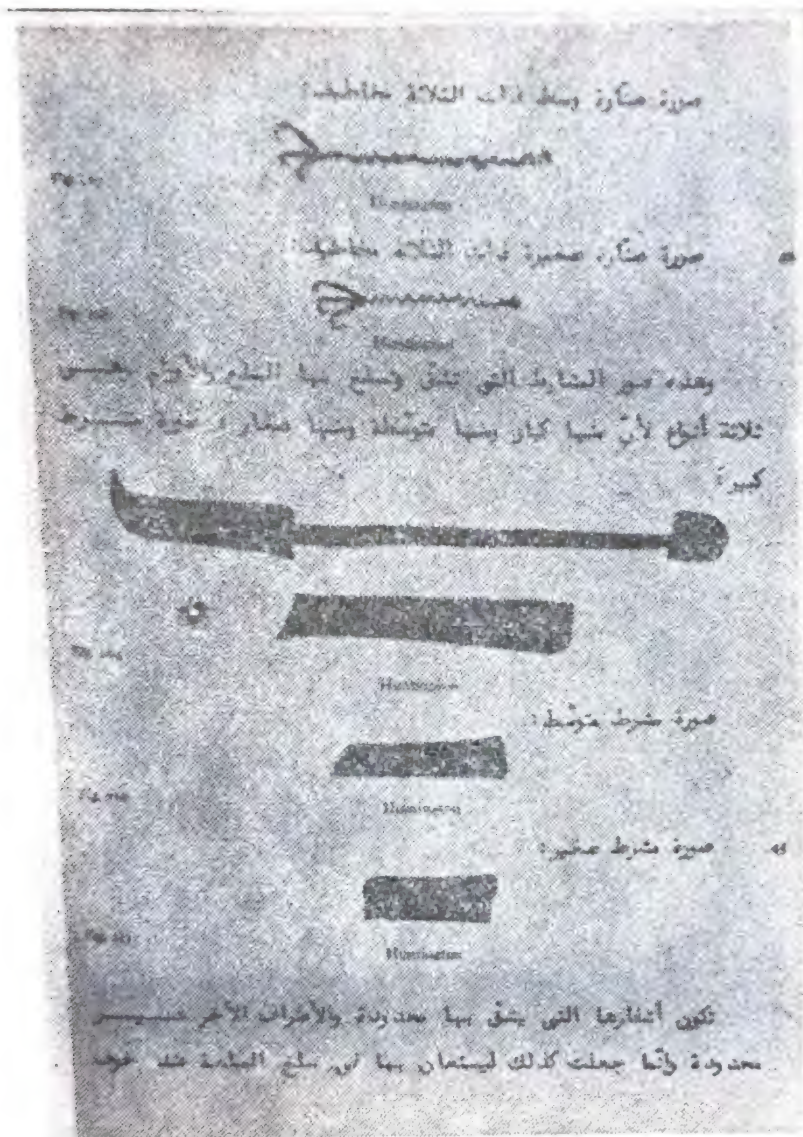 صورة صنّارة وسط ذات الثلاثة مخاطيف:
Huntington
صورة صنّارة صغيرة ذات الثلاثة مخاطيف:
Huntington
وهذه صور المشارط التي تشقّ وتسلخ بها السلع والأورام وهـــي
ثلاثة أنواع لأنّ منها كبار ومنها متوسّطة ومنها صغار صورة مشـــرط
كبير:
Huntington
صورة مشرط متوسّط:
Huntington
صورة مشرط صغير:
Huntington
تكون أشفارها التي يشقّ بها محدودة والأطراف الأخر غـــيـــر
محدودة وإنّما جعلت كذلك ليستعان بها في سلخ السلعة عند خوف